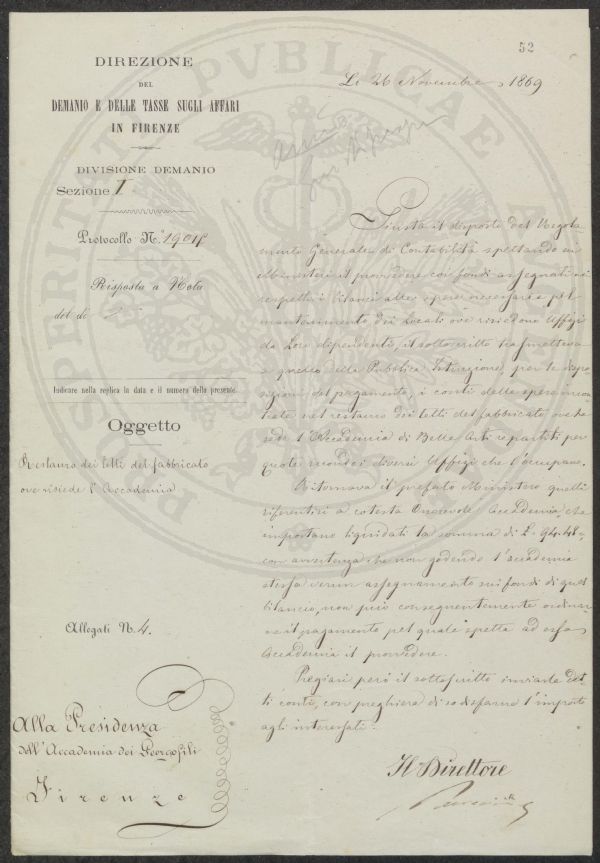 52
DIREZIONE
DEL
DEMANIO E DELLE TASSE SUGLI AFFARI
IN FIRENZE
DIVISIONE DEMANIO
Sezione I
Protocollo N.
Risposta a Nota
del dì
Indicare nella replica la data e il numero della presente.
Oggetto
Restauro dei tetti del fabbricato
ove risiede l'Accademia
Allegati N. 4.
Alla Presidenza
dell'Accademia dei Georgofili
Firenze
Li 26 Novembre 1869
Giusta il disposto del Regola
mento Generale di Contabilità spettando ai
Ministeri il provvedere coi fondi assegnati nei
respettivi Bilanci alle opere necessarie pel
mantenimento dei Locali ove risiedono Uffizi
da Loro dipendenti, il sottoscritto trasmetteva
a quello della Pubblica Istruzione, per le dispo
sizioni del pagamento, i conti delle spese incon
trate nel restauro dei tetti del fabbricato ove ha
sede l'Accademia di Belle Arti repartiti per
quote secondo i diversi Uffizi che l'occupano.
Ritornava il prefato Ministero quelli
riferentisi a cotesta Onorevole Accademia, che
importano liquidati la somma di L. 94.48.
con avvertenza che non godendo l'accademia
stessa verun assegnamento sui fondi di quel
bilancio, non può conseguentemente ordinar
ne il pagamento pel quale spetta ad essa
Accademia il provvedere.
Pregiasi però il sottoscritto inviarle det
ti conti, con preghiera di sodisfarne l'importo
agli interessati.
Il Direttore
PROSPERITATI PVBLICAE